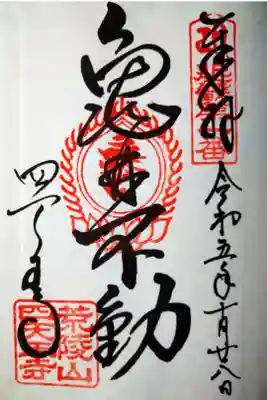 奉拝
令和五年十月廿八日
亀井不動
四天王寺
荒陵山
四天王寺